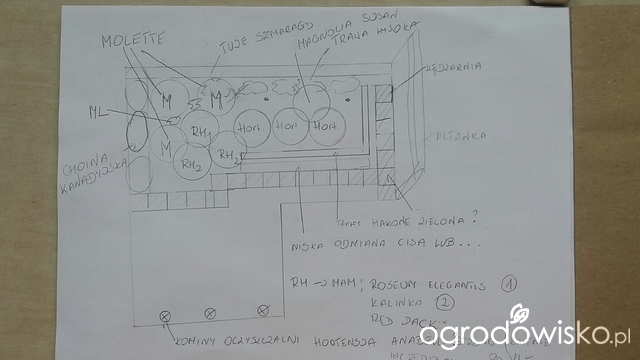 MOLETTE
TUJE SZMARAGD
MAGNOLIA SUSAN
TRAWA WYSOKA
WĘDZARNIA
M
M
ML
RH1
HORT
HORT
HORT
ALTANKA
M
RH2
RH3
CHOINA
KANADYJSKA
HAKONE ZIELONA ?
NISKA ODMIANA CISA LUB...
RH → MAM: ROSEUM ELEGANTIS 1
KALINKA 2
RED JACK
KOMINY OCZYSZCZALNI
HORTENSJA
ogrodowisko.pl